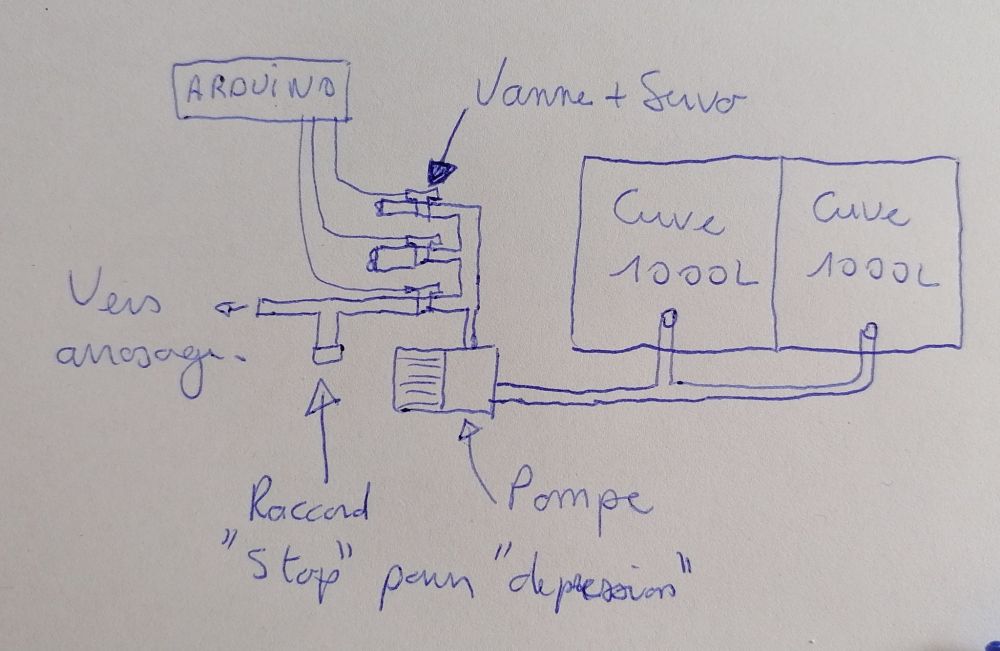 ARDUINO
Vanne + Servo
Cuve
1000L
Cuve
1000L
Vers
arrosage.
Raccord
"Stop" pour "depression"
Pompe